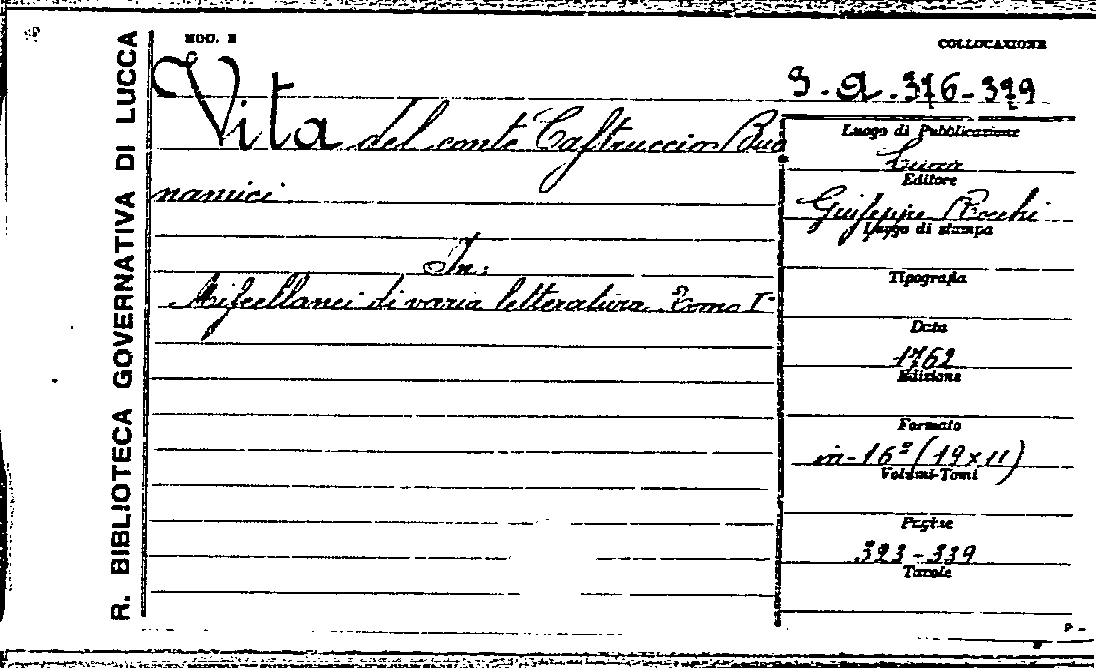 R. BIBLIOTECA GOVERNATIVA DI LUCCA
MOD. E
COLLOCAZIONE
Vita del conte Castruccio Buo
namici
In:
Miscellanei di varia letteratura. Tomo I
Luogo di Pubblicazione
Lucca
Editore
Giuseppe Rocchi
Luogo di stampa
Tipografia
Data
1762
Edizione
Formato
in-16º (19x11)
Volumi-Tomi
Pagine
323-339
Tavole